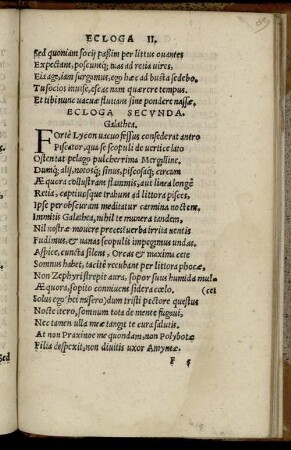 ECLOGA II.
Sed quoniam socij passim per littus ouantes
Expectant, poscuntq; tuas ad retia vires,
Eia age, iam surgamus, ego hæc ad busta sedebo,
Tu socios inuise, escas nam quærere tempus,
Et tibi nunc vacuæ fluitant sine pondere nassæ.
ECLOGA SECVNDA.
Galathea.
FOrtè Lycon vacuo fessus consederat antro
Piscator, qua se scopuli de vertice lato
Ostentat pelago pulcherrima Mergilline.
Dumq; alij, notosq; sinus, piscosaq; circum
Æquora collustrant flammis, aut linea longè
Retia, captiuosque trahunt ad littora pisces,
Ipse per obscuram meditatur carmina noctem.
Immitis Galathea, nihil te munera tandem,
Nil nostræ mouere preces? verba irrita uentis
Fudimus, & uanas scopulis impegimus undas.
Aspice, cuncta silent, Orcas & maxima cete
Somnus habet, tacitè recubant per littora phocæ,
Non Zephyri strepit aura, sopor suus humida mulcet
Æquora, sopito conniuent sidera cœlo.
Solus ego (hei misero) dum tristi pectore quæstus
Nocte itero, somnum tota de mente fugaui,
Nec tamen ulla meæ tangit te cura salutis.
At non Praxinoe me quondam, non Polybotæ
Filia despexit, non diuitis uxor Amyntæ.
F 5